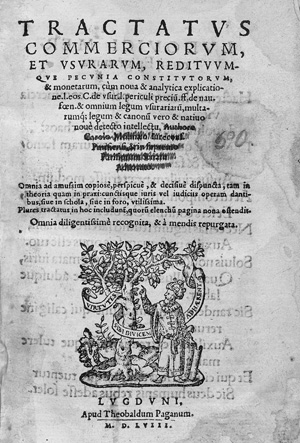 TRACTATVS
COMMERCIORVM,
ET VSVRARVM, REDITVVM-
QVE PECVNIA CONSTITVTORVM,
& monetarum, cùm noua & analytica explicatio-
ne l. eos C. de vsuris. periculi preciū. ff. de nau.
fœn. & omnium legum vsurariarū, multa-
rumq; legum & canonū vero & natiuo
nouè detecto intellectu, Authore
Carolo Molinæo
600
Omnia ad amussim copiosè, perspicuè, & decisiuè dispuncta, tam in
theoria quam in praxi: cunctisque iuris vel iudiciis operam danti-
bus, siue in schola, siue in foro, vtilissima.
Plures tractatus in hoc includunt, quorū elenchū pagina nona ostendit.
Omnia diligentissimè recognita, & à mendis repurgata.
LVGDVNI,
Apud Theobaldum Paganum.
M. D. LVIII.